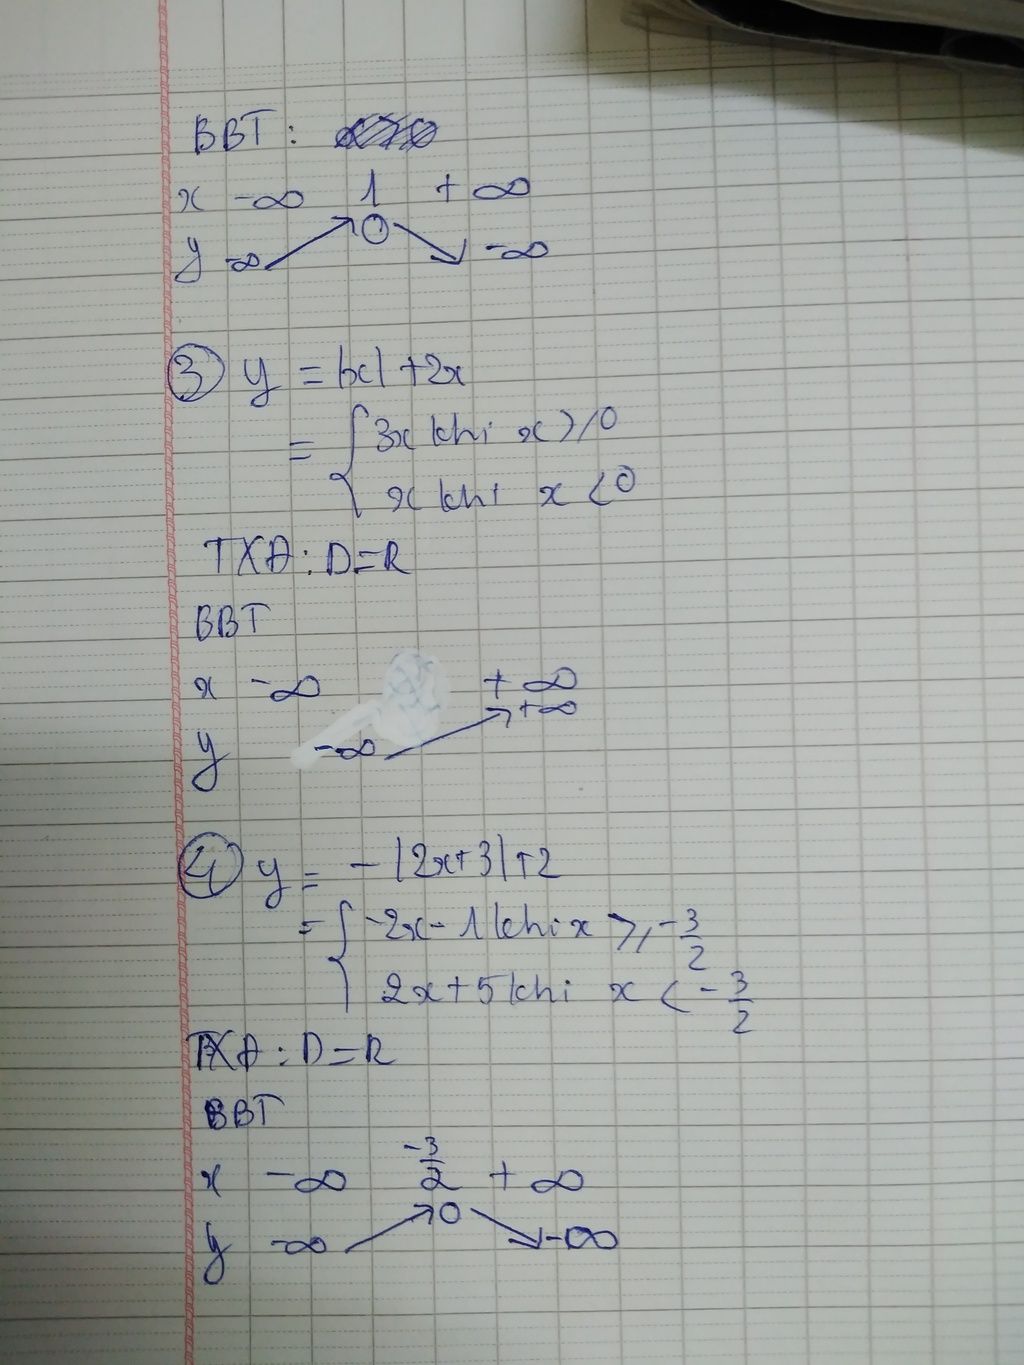 BBT:
x -∞ 1 +∞
y -∞ 0 -∞
③ y = |x| + 2x
= { 3x khi x ≥ 0
x khi x < 0
TXĐ: D = R
BBT
x -∞ +∞
y -∞ +∞
④ y = -|2x+3|+2
= { -2x-1 khi x ≥ -3/2
2x+5 khi x < -3/2
TXĐ: D = R
BBT
x -∞ -3/2 +∞
y -∞ 0 -∞